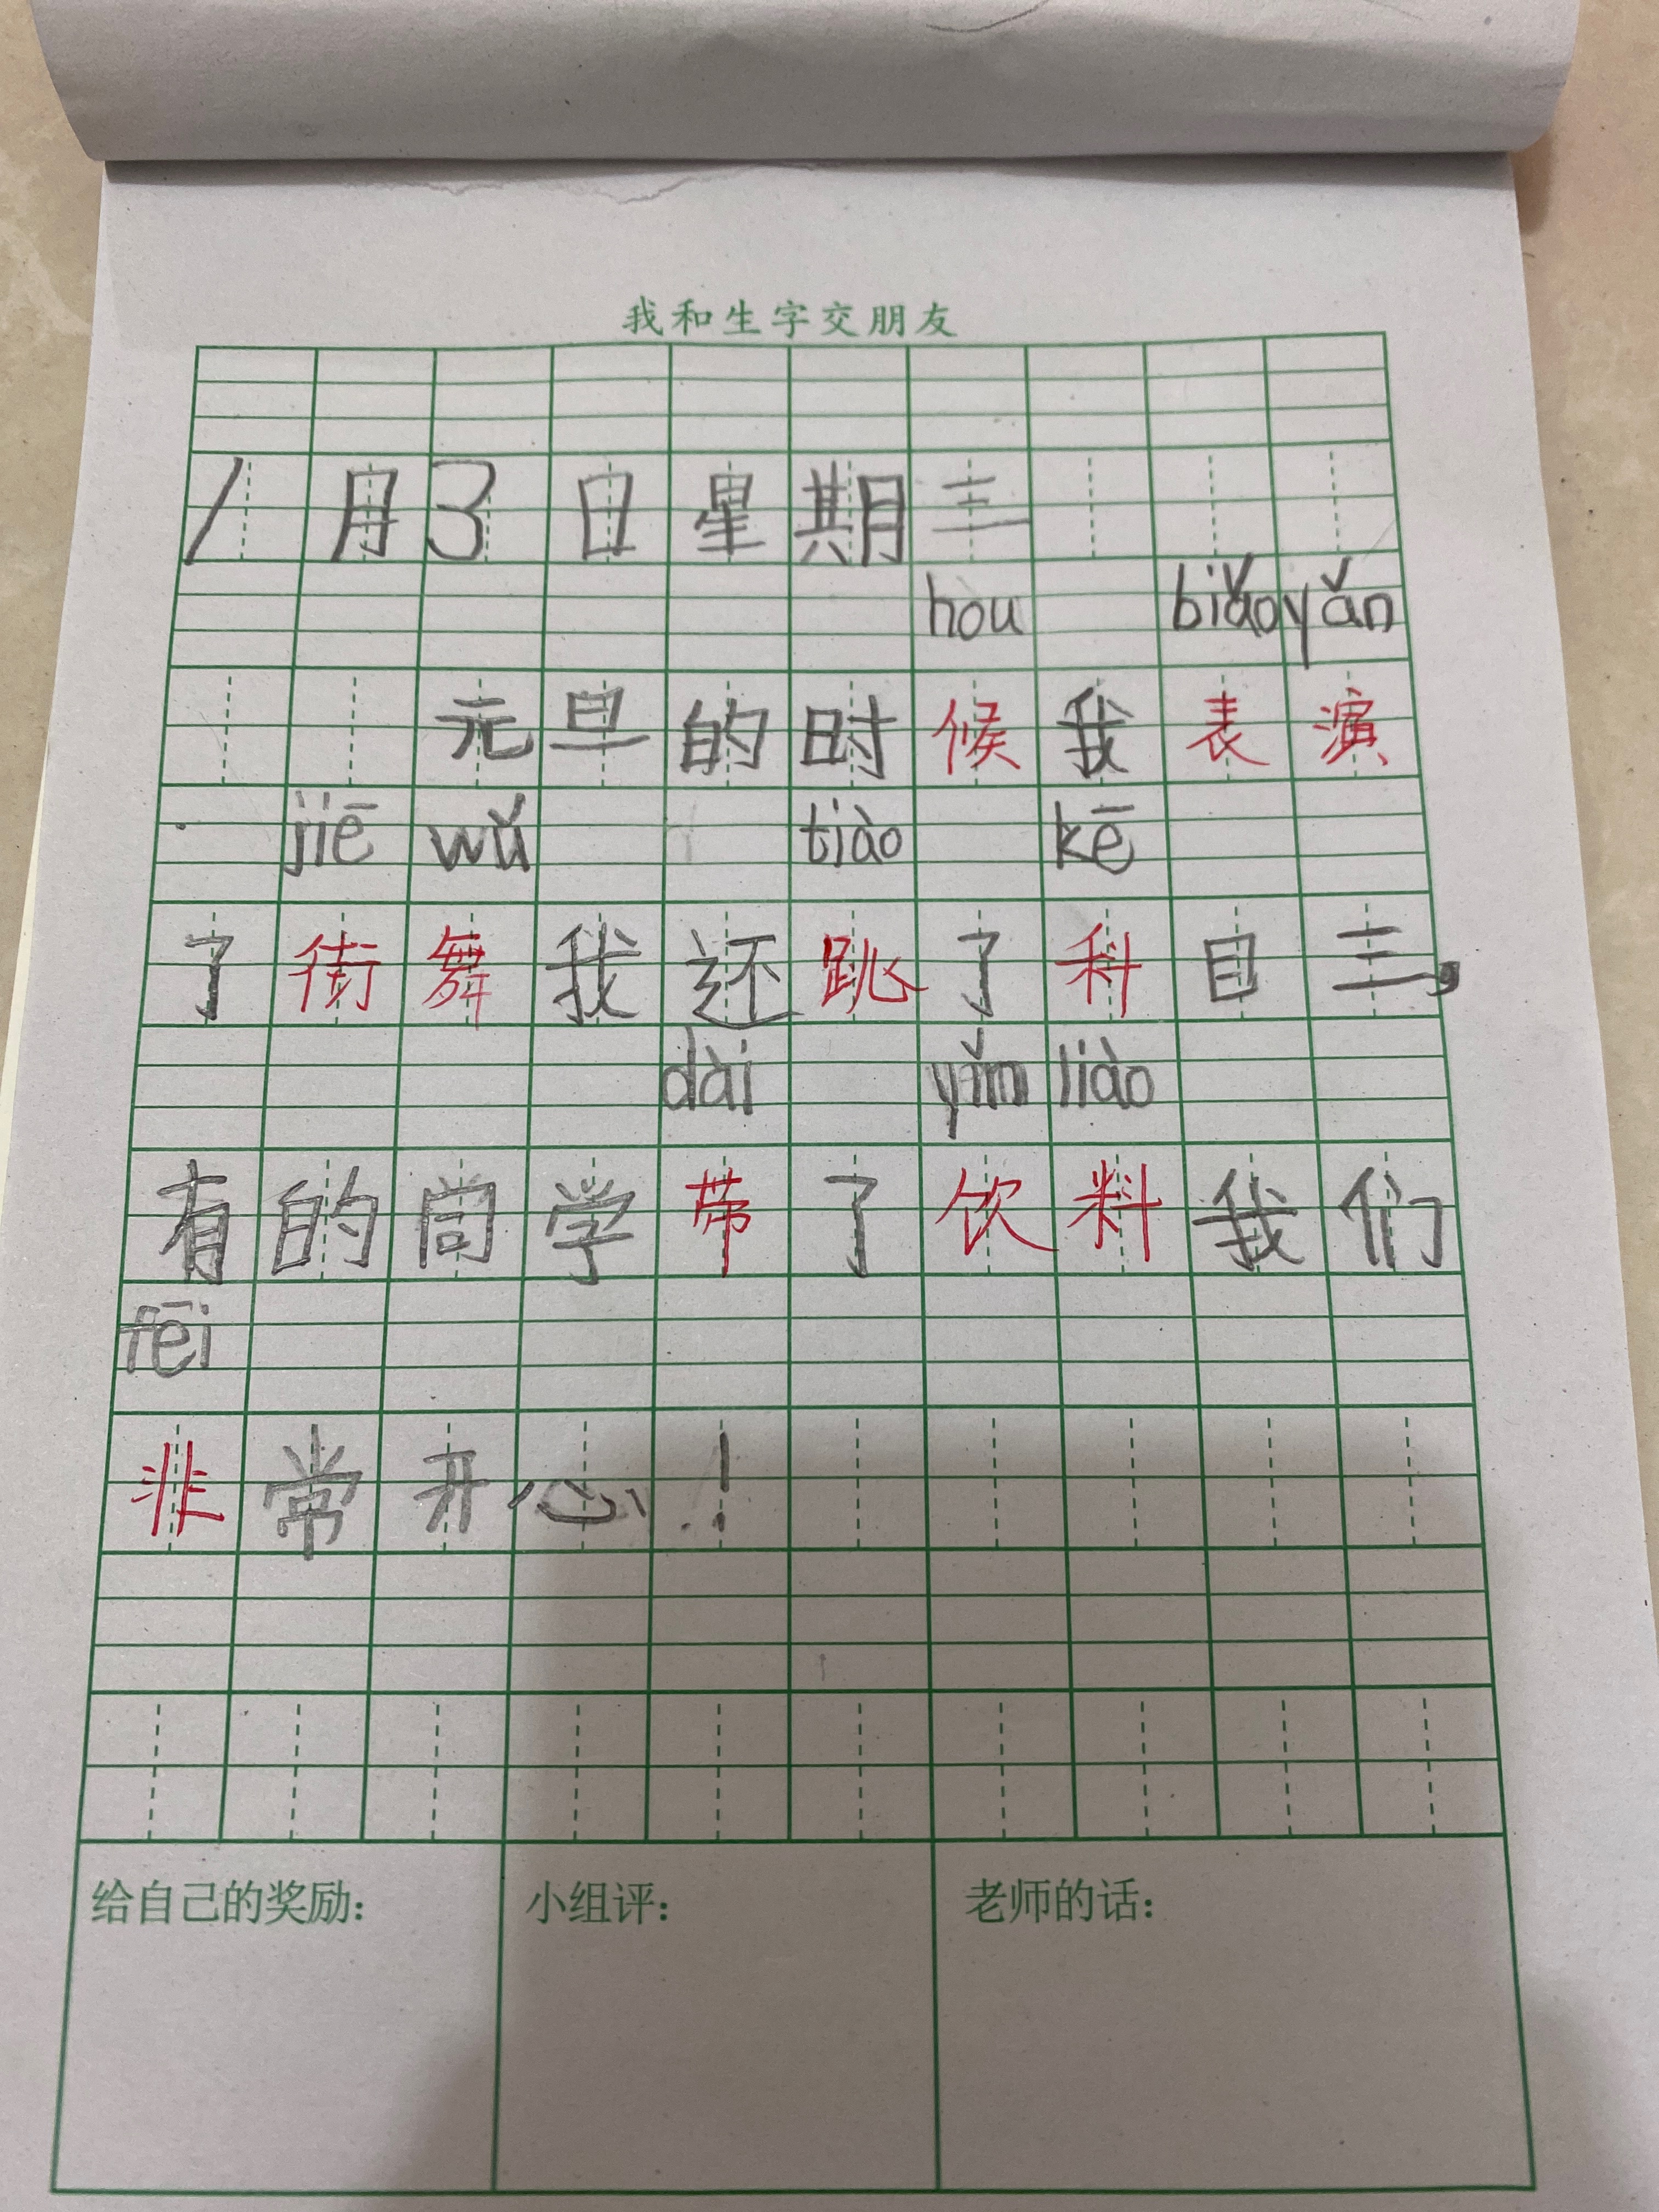 我和生字交朋友
1月3日星期三
hòu biǎo yǎn
元旦的时候我表演
jiē wǔ tiào kē
了街舞我还跳了科目三,
dài yǐn liào
有的同学带了饮料我们
fēi
非常开心!
给自己的奖励: 小组评: 老师的话: